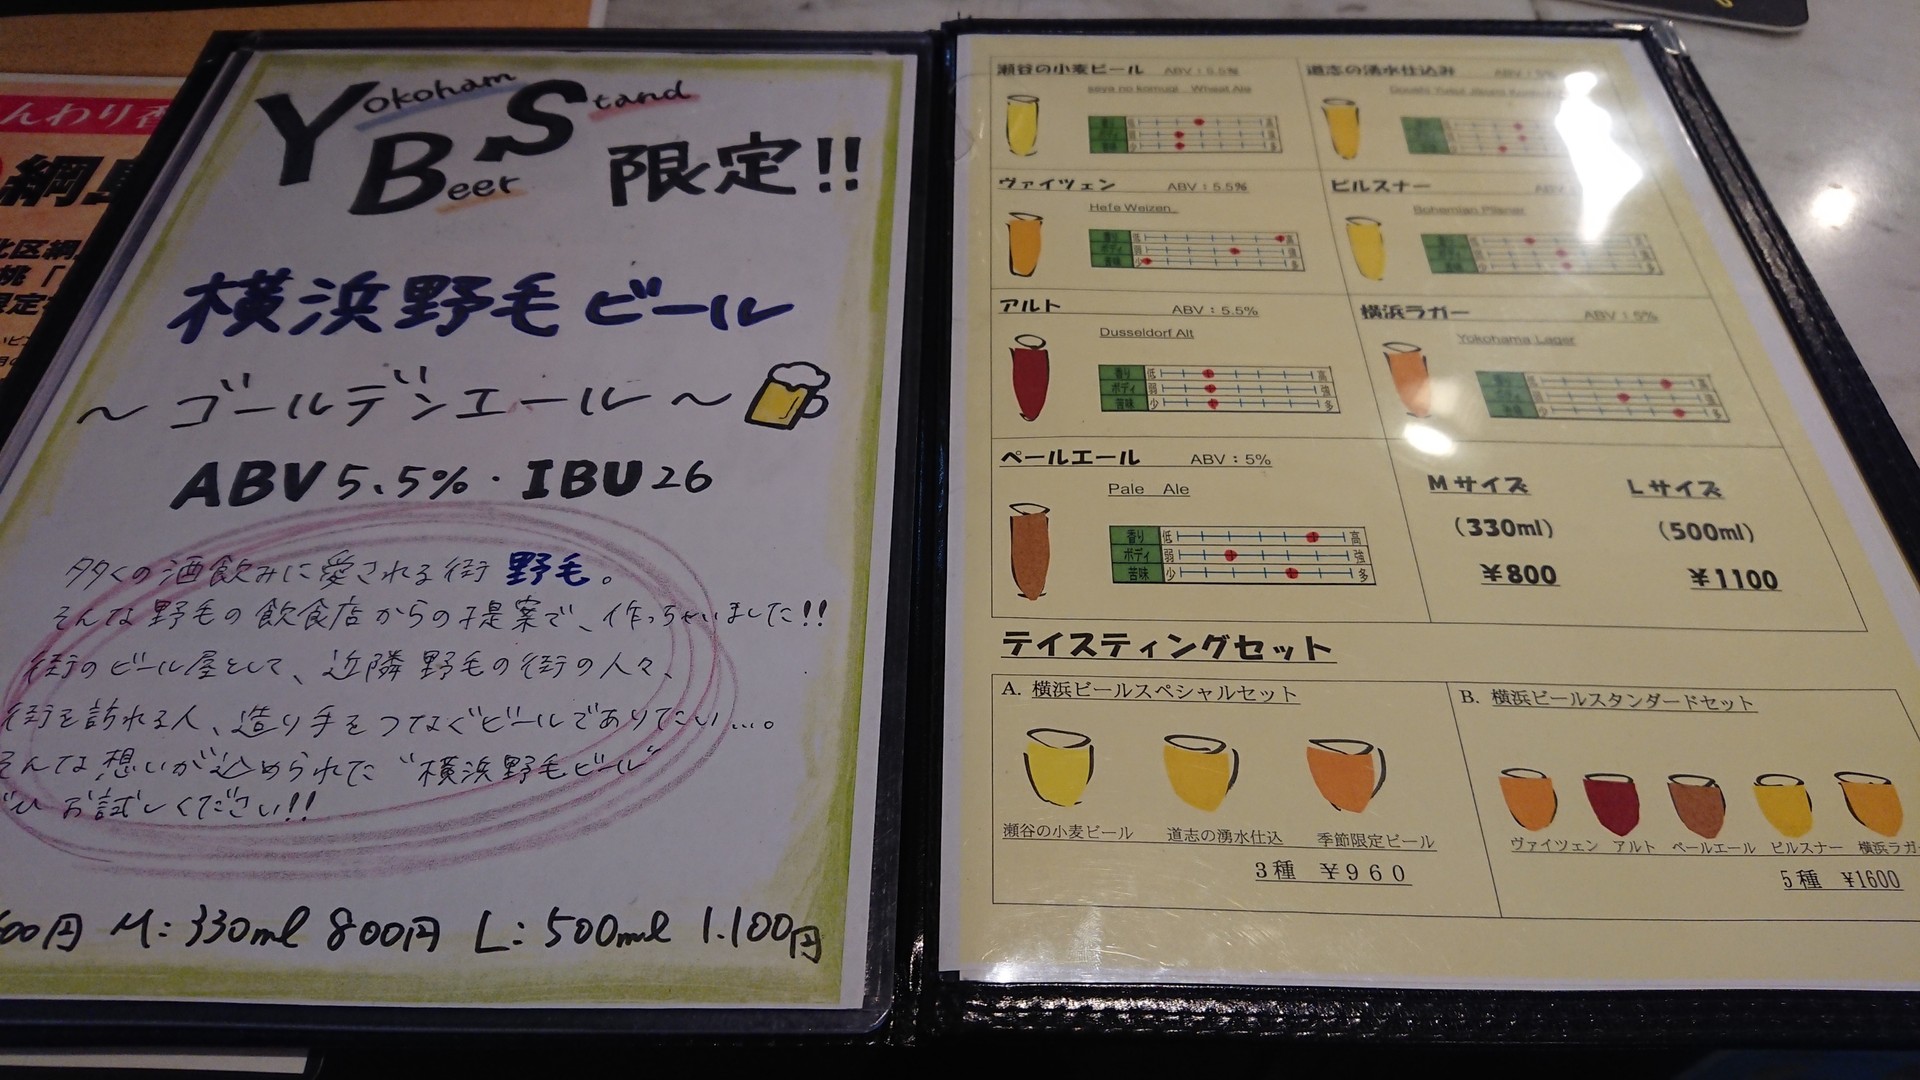 んわり香
綱島
北区綱
桃「
限定
Yokoham Beer Stand
限定!!
横浜野毛ビール
～ゴールデンエール～
ABV 5.5%・IBU 26
多くの酒飲みに愛される街 野毛。
そんな野毛の飲食店からの提案で、作っちゃいました!!
街のビール屋として、近隣野毛の街の人々、
街を訪れる人、造り手をつなぐビールでありたい…。
そんな想いが込められた"横浜野毛ビール"
ぜひお試しください!!
600円 M:330ml 800円 L:500ml 1.100円
瀬谷の小麦ビール ABV：5.5%
seya no komugi Wheat Ale
道志の湧水仕込み
ヴァイツェン ABV：5.5%
Hefe Weizen
ピルスナー
Bohemian Pilsner
アルト ABV：5.5%
Dusseldorf Alt
香り 低 高
ボディ 弱 強
苦味 少 多
横浜ラガー ABV：5%
Yokohama Lager
ペールエール ABV：5%
Pale Ale
香り 低 高
ボディ 弱 強
苦味 少 多
Mサイズ Lサイズ
（330ml） （500ml）
￥800 ￥1100
テイスティングセット
A. 横浜ビールスペシャルセット
瀬谷の小麦ビール 道志の湧水仕込 季節限定ビール
3種 ￥960
B. 横浜ビールスタンダードセット
ヴァイツェン アルト ペールエール ピルスナー 横浜ラガー
5種 ￥1600